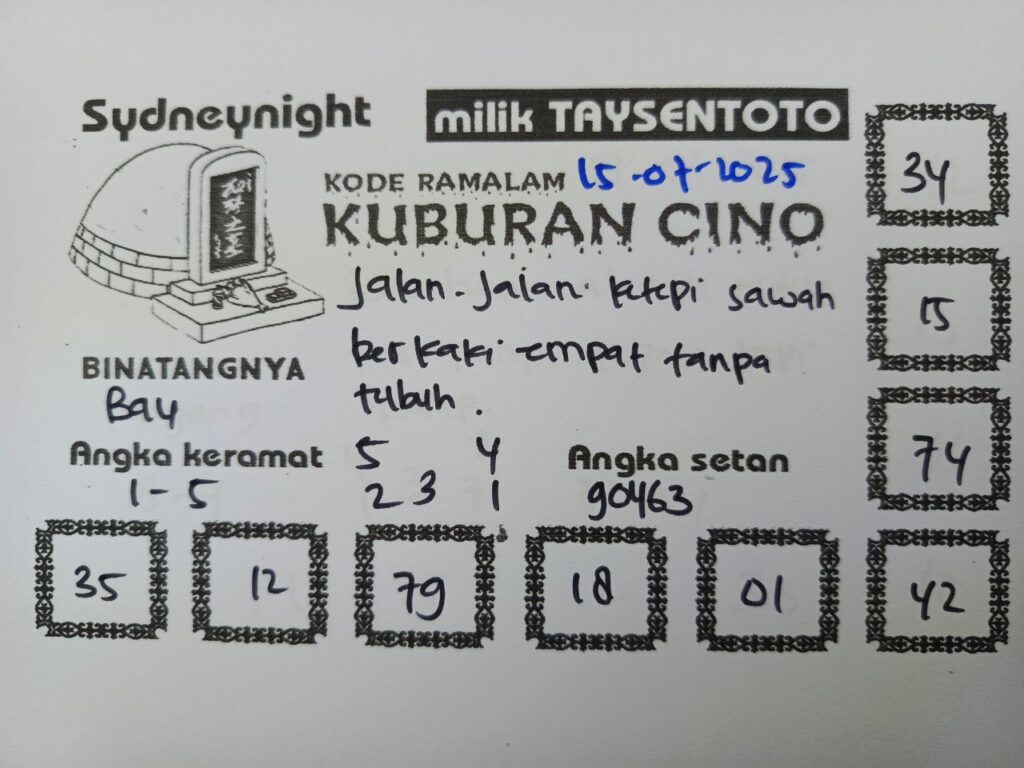 Sydneynight
milik TAYSENTOTO
KODE RAMALAM 15-07-2025
KUBURAN CINO
Jalan-Jalan ketepi sawah
berkaki empat tanpa
tubuh.
BINATANGNYA
Bay
Angka keramat
1-5
5 4
2 3 1
Angka setan
90463
34
15
74
35 12 79 18 01 42